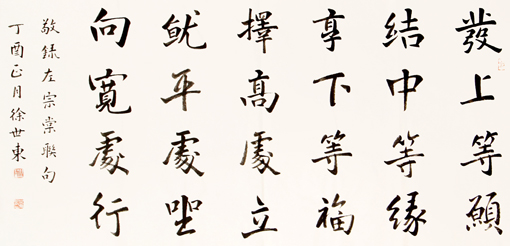 發上等願
結中等緣
享下等福
擇高處立
就平處坐
向寬處行
敬錄左宗棠聯句
丁酉正月徐世東